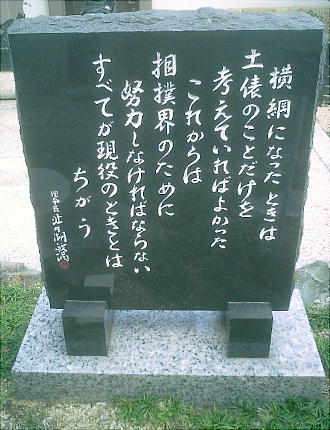 横綱になったときは
土俵のことだけを
考えていればよかった
これからは
相撲界のために
努力しなければならない
すべてが現役のときとは
ちがう
理事長 北の湖敏満